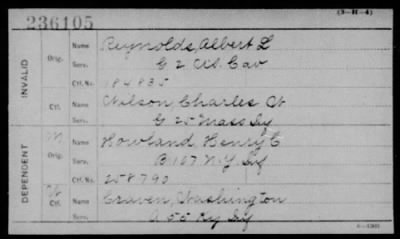 (3-H-4)
236105
INVALID
Orig. Name Reynolds, Albert L
Serv. G 2 Cav
Ctf. No. 184835
Ctf. Name Wilson, Charles W
Serv. G 25 Mass Inf
DEPENDENT
M
Orig. Name Howland, Henry C
Serv. B 107 N.Y. Inf
Ctf. No. 258790
W
Ctf. Name Craven, Washington
Serv. A 55 Ky Inf